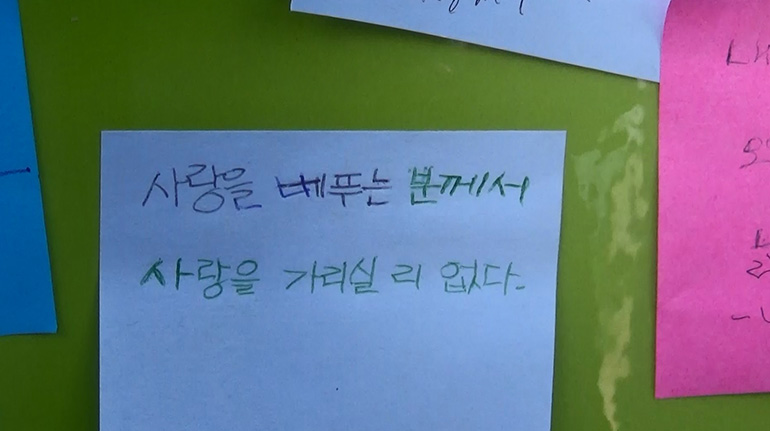 사랑을 베푸는 분께서
사랑을 가리실 리 없다.